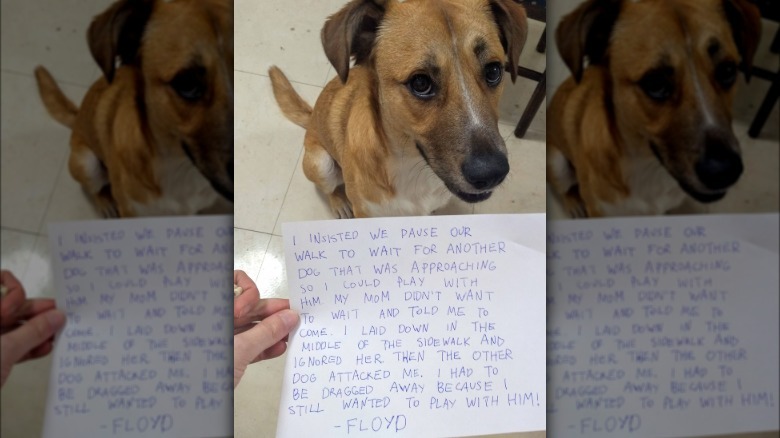 I INSISTED WE PAUSE OUR
WALK TO WAIT FOR ANOTHER
DOG THAT WAS APPROACHING
SO I COULD PLAY WITH
HIM. MY MOM DIDN'T WANT
TO WAIT AND TOLD ME TO
COME. I LAID DOWN IN THE
MIDDLE OF THE SIDEWALK AND
IGNORED HER. THEN THE OTHER
DOG ATTACKED ME. I HAD TO
BE DRAGGED AWAY BECAUSE I
STILL WANTED TO PLAY WITH HIM!
- FLOYD